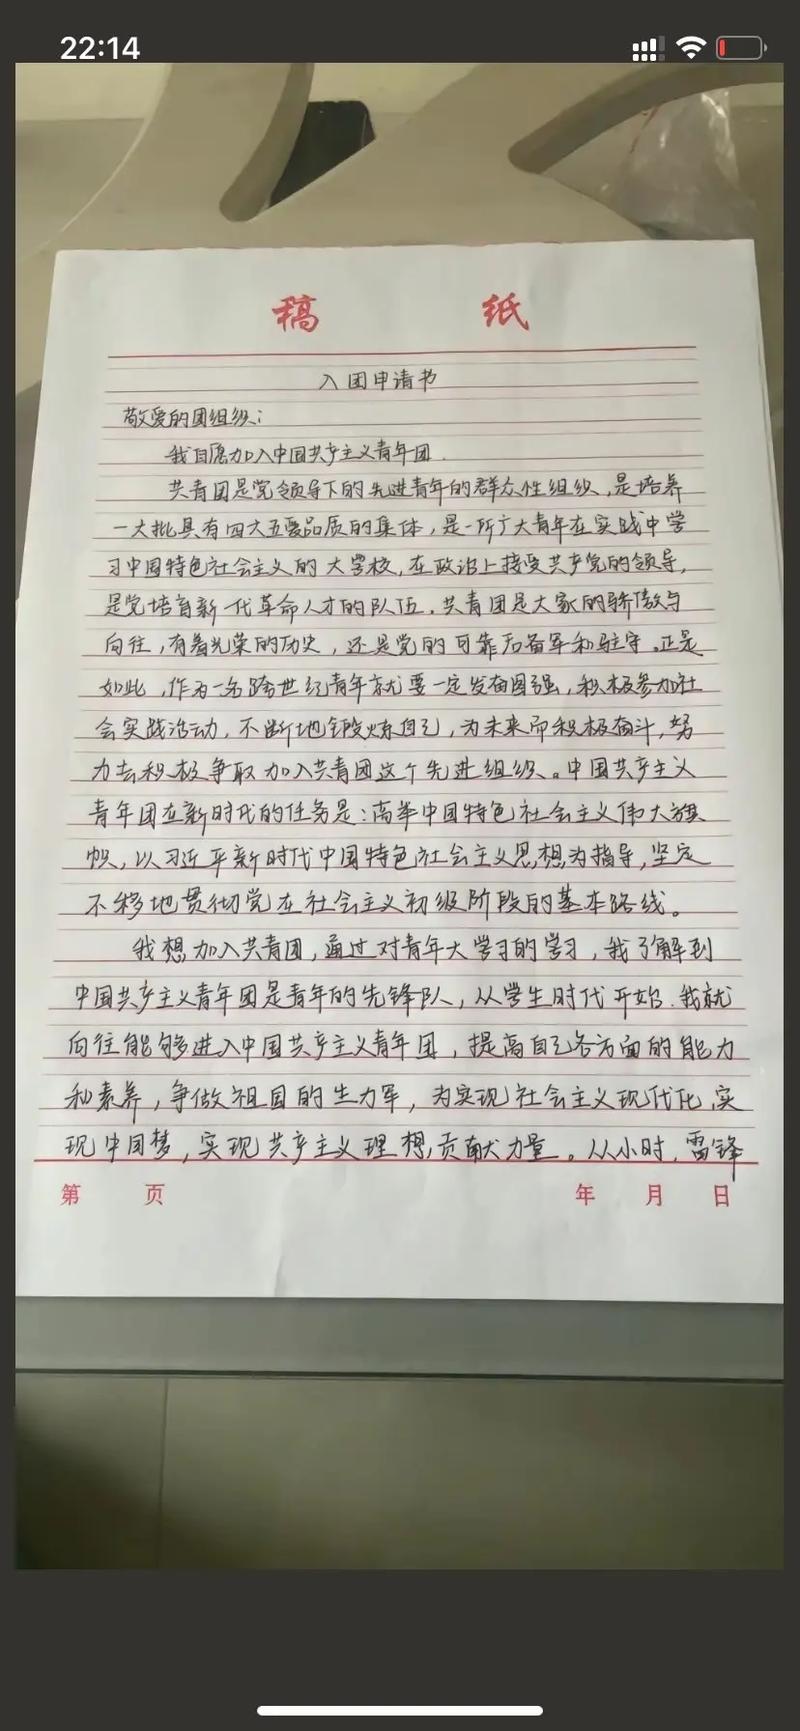 22:14
稿 纸
入团申请书
敬爱的团组织：
我自愿加入中国共产主义青年团.
共青团是党领导下的先进青年的群众性组织，是培养
一大批具有四大五要品质的集体，是一所广大青年在实践中学
习中国特色社会主义的大学校，在政治上接受共产党的领导，
是党培育新一代革命人才的队伍.共青团是大家的骄傲与
向往，有着光荣的历史，还是党的可靠后备军和驻守。正是
如此，作为一名跨世纪青年就要一定发奋图强，积极参加社
会实践活动，不断地锻炼自己，为未来而积极奋斗，努
力去积极争取加入共青团这个先进组织。中国共产主义
青年团在新时代的任务是：高举中国特色社会主义伟大旗
帜，以习近平新时代中国特色社会主义思想为指导，坚定
不移地贯彻党在社会主义初级阶段的基本路线。
我想加入共青团，通过对青年大学习的学习，我了解到
中国共产主义青年团是青年的先锋队，从学生时代开始.我就
向往能够进入中国共产主义青年团，提高自己各方面的能力
和素养，争做祖国的生力军，为实现社会主义现代化,实
现中国梦，实现共产主义理想,贡献力量。从小时，雷锋
第 页 年 月 日